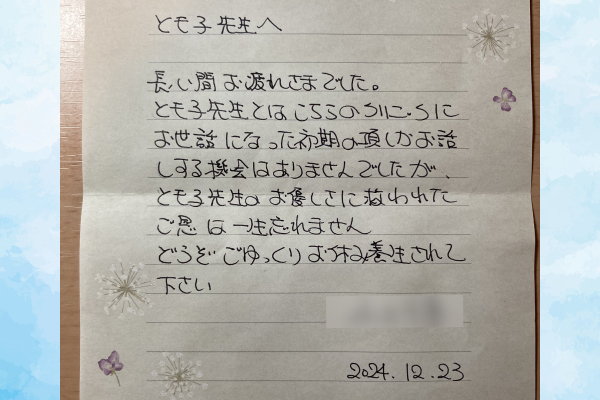 とも子先生へ
長い間お疲れさまでした。
とも子先生とはこちらのクリニックに
お世話になった初期の頃しかお話
しする機会はありませんでしたが、
とも子先生のお優しさに救われた
ご恩は一生忘れません
どうぞごゆっくりお休み養生されて
下さい
2024.12.23